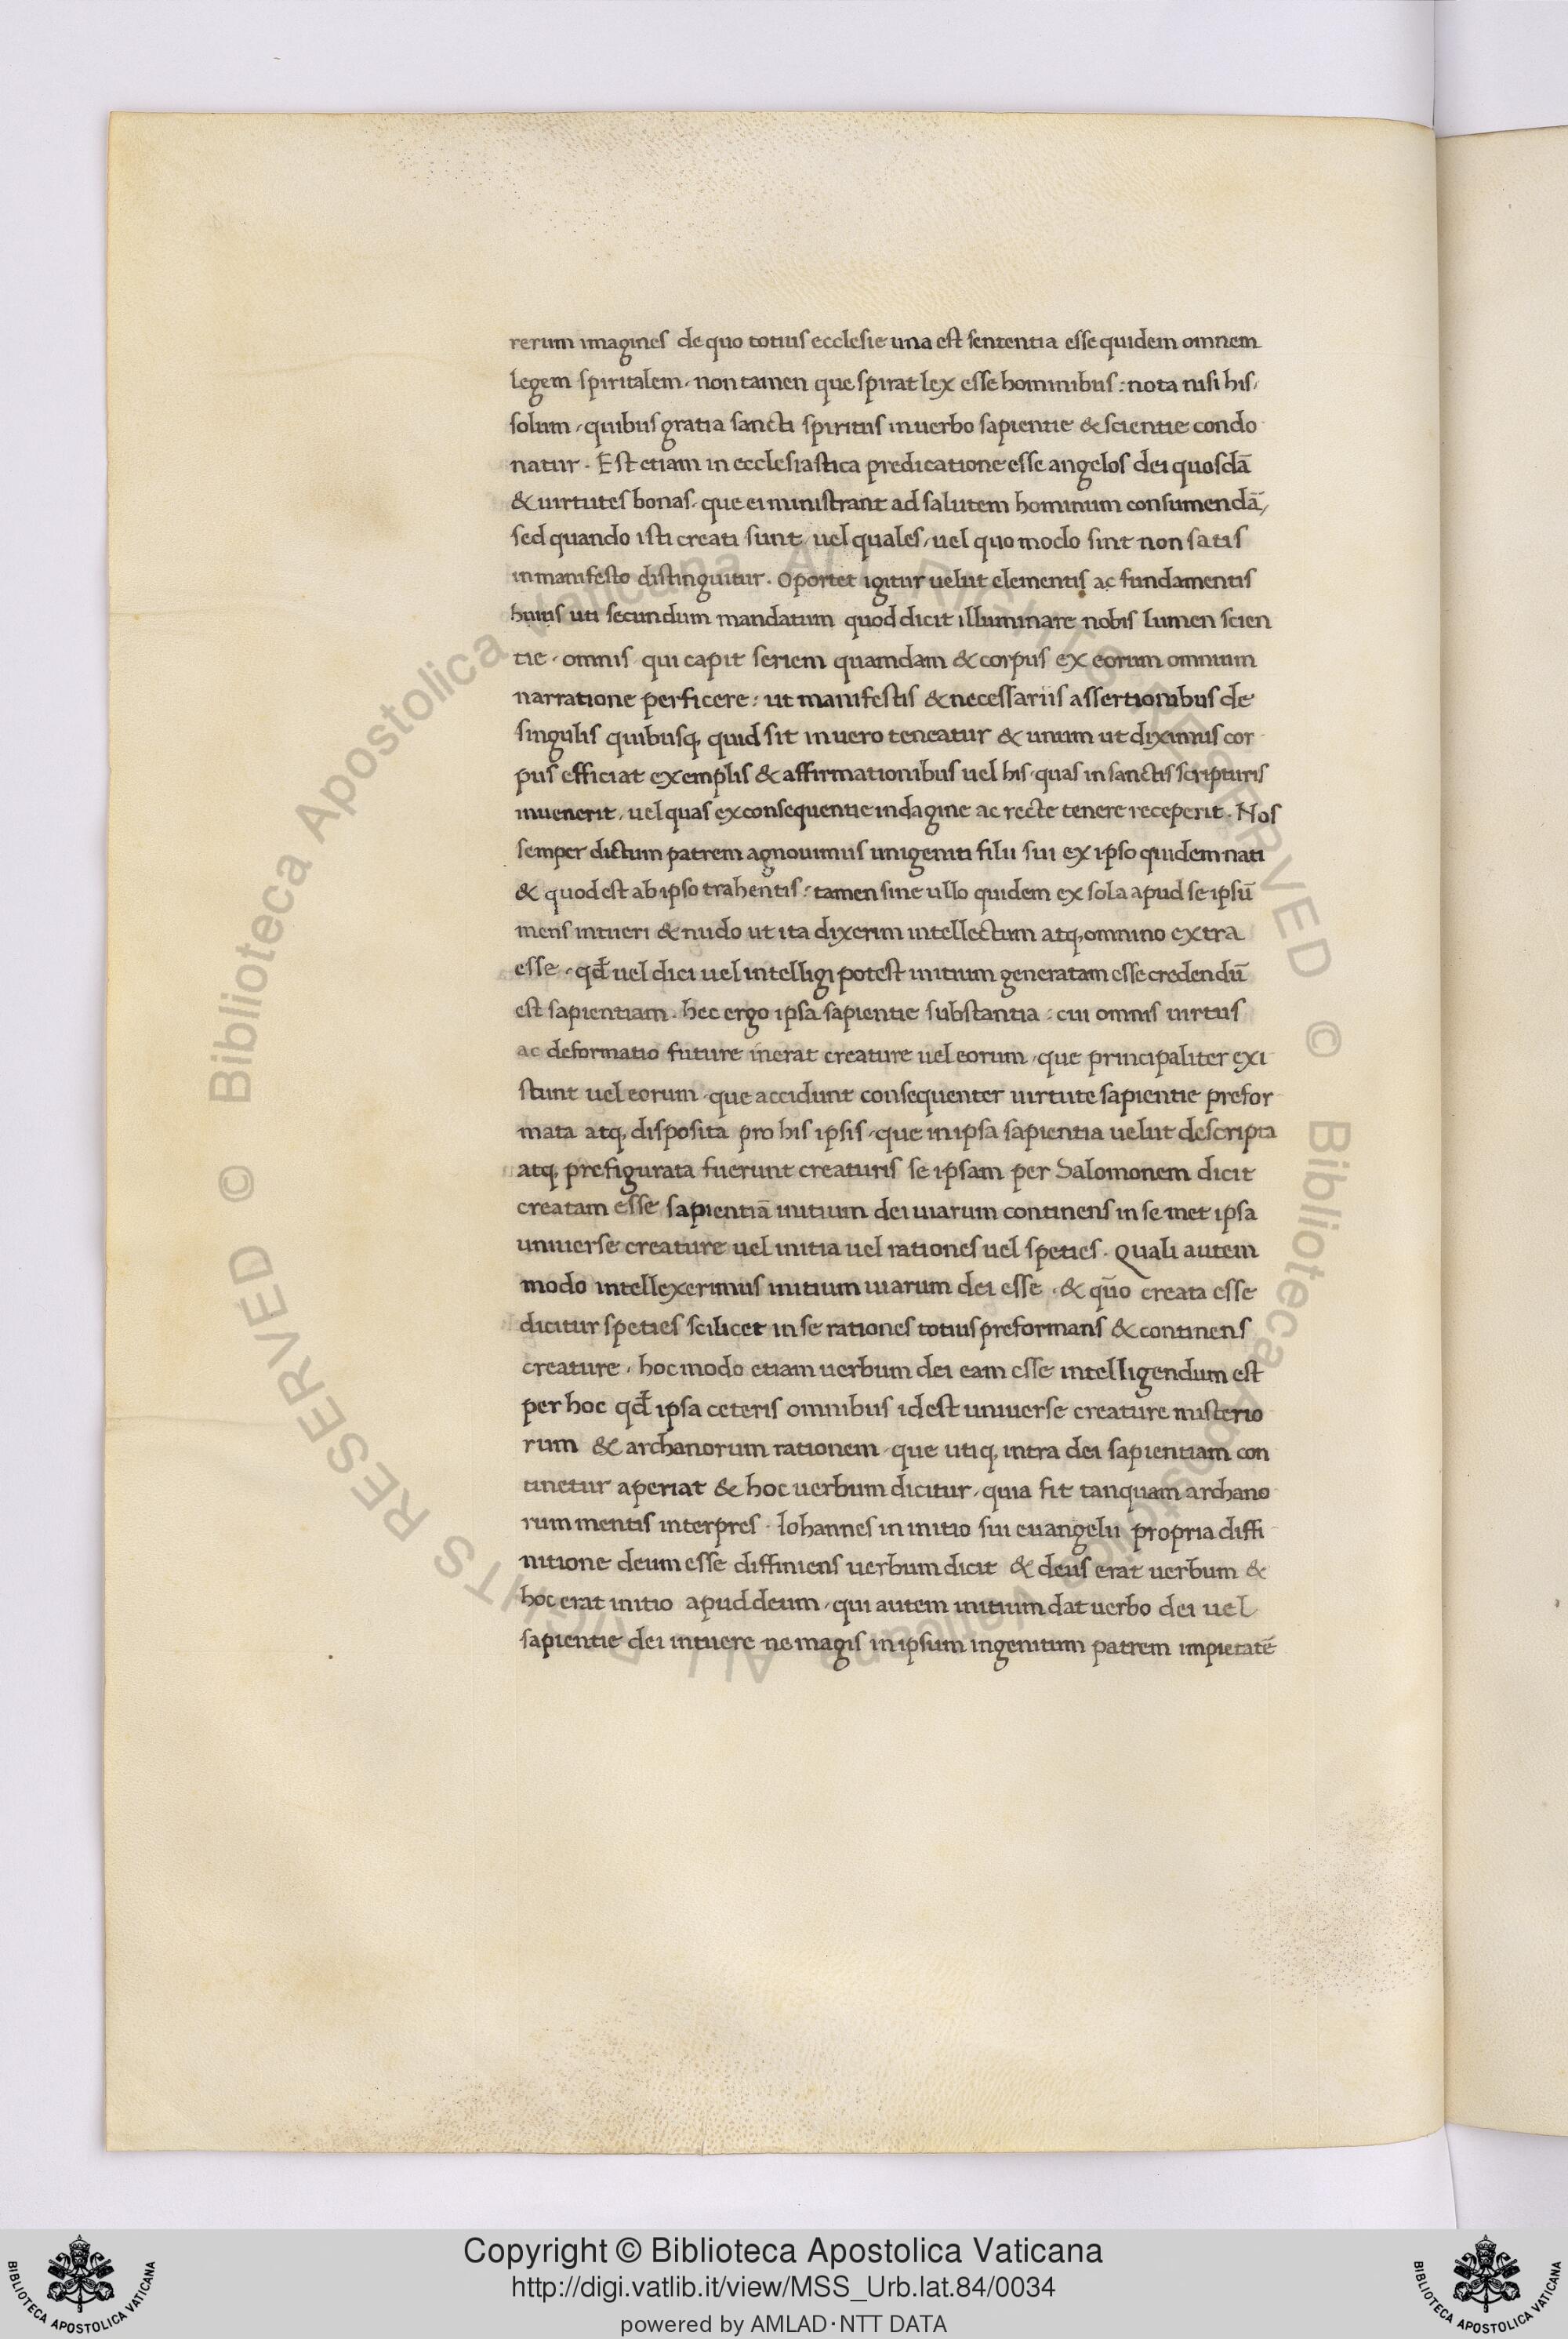 rerum imagines de quo totius ecclesie una est sententia esse quidem omnem
legem spiritalem, non tamen que spirat lex esse hominibus: nota nisi his,
solum, quibus gratia sancti spiritus in uerbo sapientie & scientie condo
natur. Est etiam in ecclesiastica predicatione esse angelos dei quosdā
& uirtutes bonas, que ei ministrant ad salutem hominum consumendā,
sed quando isti creati sunt, uel quales, uel quo modo sint non satis
in manifesto distinguitur. Oportet igitur uelut elementis ac fundamentis
huius uti secundum mandatum quod dicit illuminare nobis lumen scien
tie, omnis qui capit seriem quamdam & corpus ex eorum omnium
narratione perficere: ut manifestis & necessariis assertionibus de
singulis quibusq, quid sit in uero teneatur & unum ut diximus cor
pus efficiat exemplis & affirmationibus uel his, quas in sanctis scripturis
inuenerit, uel quas ex consequentie indagine ac recte tenere receperit. Nos
semper dictum patrem agnouimus unigeniti filii sui ex ipso quidem nati
& quod est ab ipso trahentis: tamen sine ullo quidem ex sola apud se ipsū
mens intueri & nudo ut ita dixerim intellectum atq, omnino extra
esse, qđ uel dici uel intelligi potest initium generatam esse credendū
est sapientiam. hec ergo ipsa sapientie substantia: cui omnis uirtus
ac deformatio future inerat creature uel eorum, que principaliter exi
stunt uel eorum, que accidunt consequenter uirtute sapientie prefor
mata atq, disposita pro his ipsis, que in ipsa sapientia uelut descripta
atq, prefigurata fuerunt creaturis se ipsam per Salomonem dicit
creatam esse sapientiā initium dei uiarum continens in se met ipsa
uniuerse creature uel initia uel rationes uel speties. Quali autem
modo intellexerimus initium uiarum dei esse, & quō creata esse
dicitur speties scilicet in se rationes totius preformans & continens
creature, hoc modo etiam uerbum dei eam esse intelligendum est
per hoc qđ ipsa ceteris omnibus id est uniuerse creature misterio
rum & archanorum rationem, que utiq, intra dei sapientiam con
tinetur aperiat & hoc uerbum dicitur, quia fit tanquam archano
rum mentis interpres. Iohannes in initio sui euangelii propria diffi
nitione deum esse diffiniens uerbum dicit & deus erat uerbum &
hoc erat initio apud deum, qui autem initium dat uerbo dei uel
sapientie dei intuere ne magis in ipsum ingenitum patrem impietatē
Copyright © Biblioteca Apostolica Vaticana
http://digi.vatlib.it/view/MSS_Urb.lat.84/0034
powered by AMLAD·NTT DATA